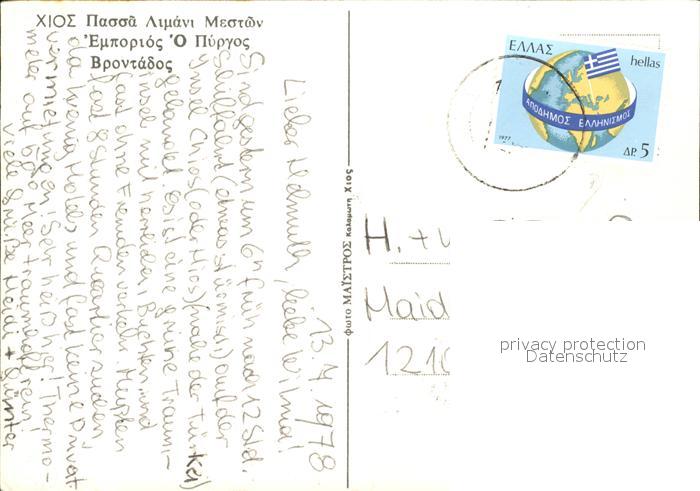 ΧΙΟΣ Πασσᾶ Λιμάνι Μεστῶν
Ἐμποριός Ὁ Πύργος
Βροντάδος
13.7.1978
Lieber Helmuth, liebe Wilma!
Sind gestern um 6h früh nach 12 Std.
Schiffahrt (etwas stürmisch) auf der
Insel Chios (oder Hios) (nahe der Türkei)
gelandet. Es ist eine grüne Traum-
insel mit herrlichen Buchten und
fast ohne Fremdenverkehr. Mußten
fast 8 Stunden Quartier suchen
da wenig Hotels und fast keine Privat
vermietungen! Sehr heiß hier! Thermo-
meter auf 50°! Meer traumhaft rein!
Viele Grüße Heidi + Günter
φωτο ΜΑΪΣΤΡΟΣ Καλαμωτη Χιος
ΕΛΛΑΣ
hellas
ΑΠΟΔΗΜΟΣ ΕΛΛΗΝΙΣΜΟΣ
1977
ΔΡ. 5
H. +
Maid
1210
privacy protection
Datenschutz